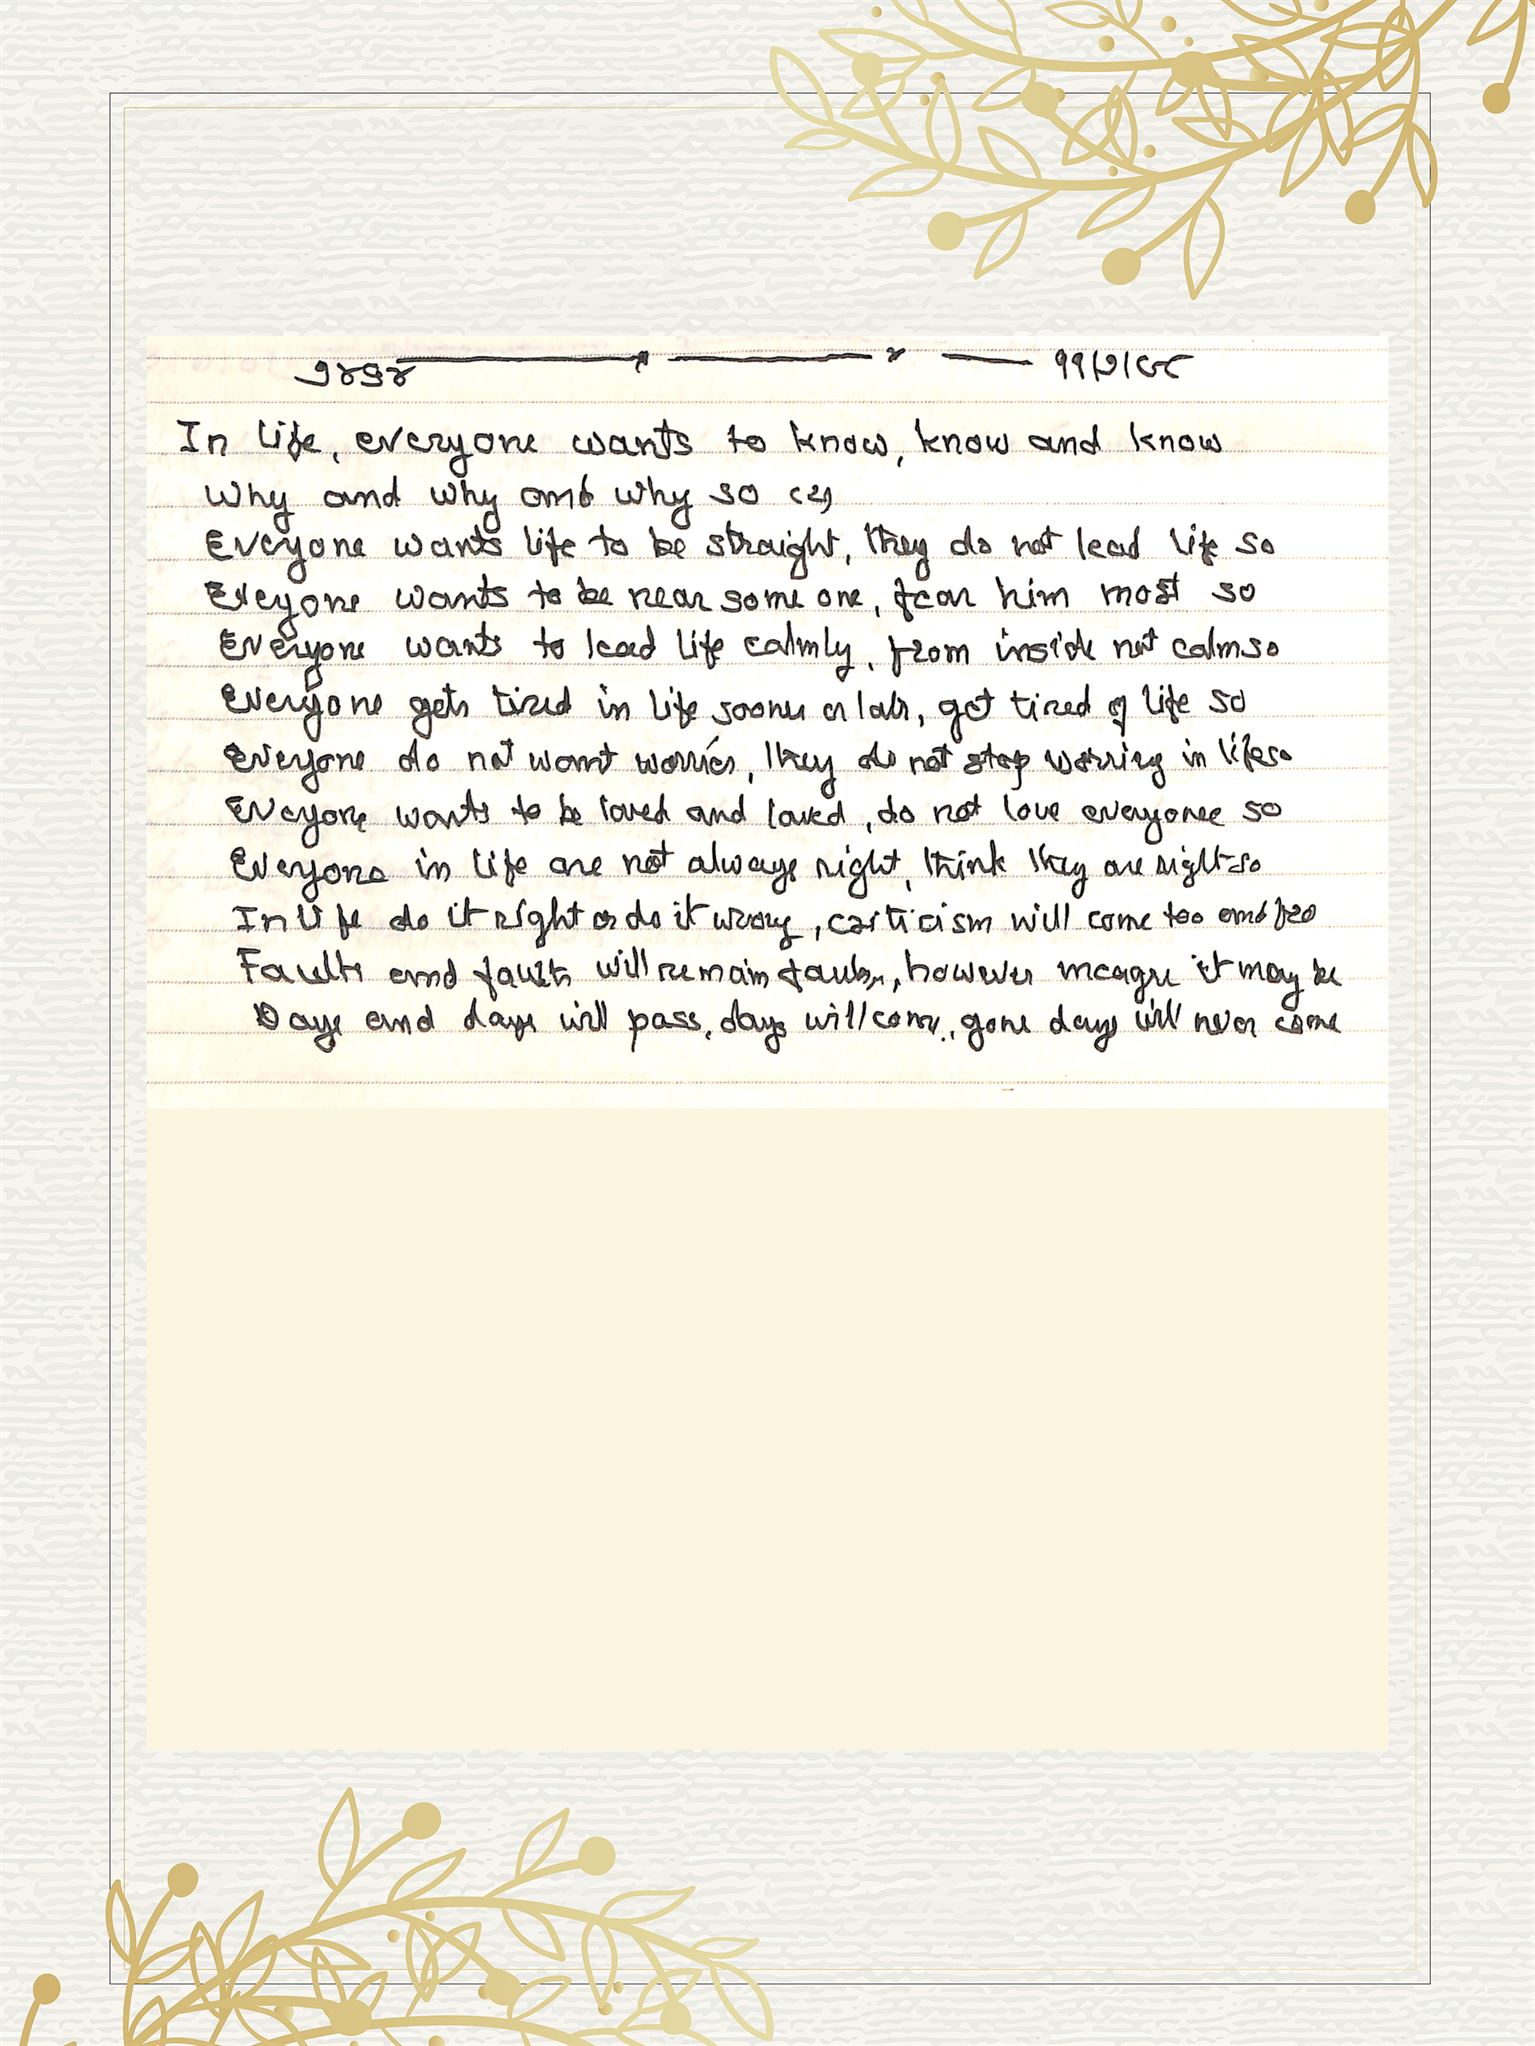 In life, everyone wants to know, know and know
Why and why and why so (2)
Everyone wants life to be straight, they do not lead life so
Everyone wants to be near someone, fear him most so
Everyone wants to lead life calmly, from inside not calm so
Everyone gets tired in life sooner or later, get tired of life so
Everyone do not want worries, they do not stop worrying in life so
Everyone wants to be loved and loved, do not love everyone so
Everyone in life are not always right, think they are right so
In life do it right or do it wrong, criticism will come too and fro
Faults and faults will remain faults, however meagre it may be
Days and days will pass, days will come, gone days will never come